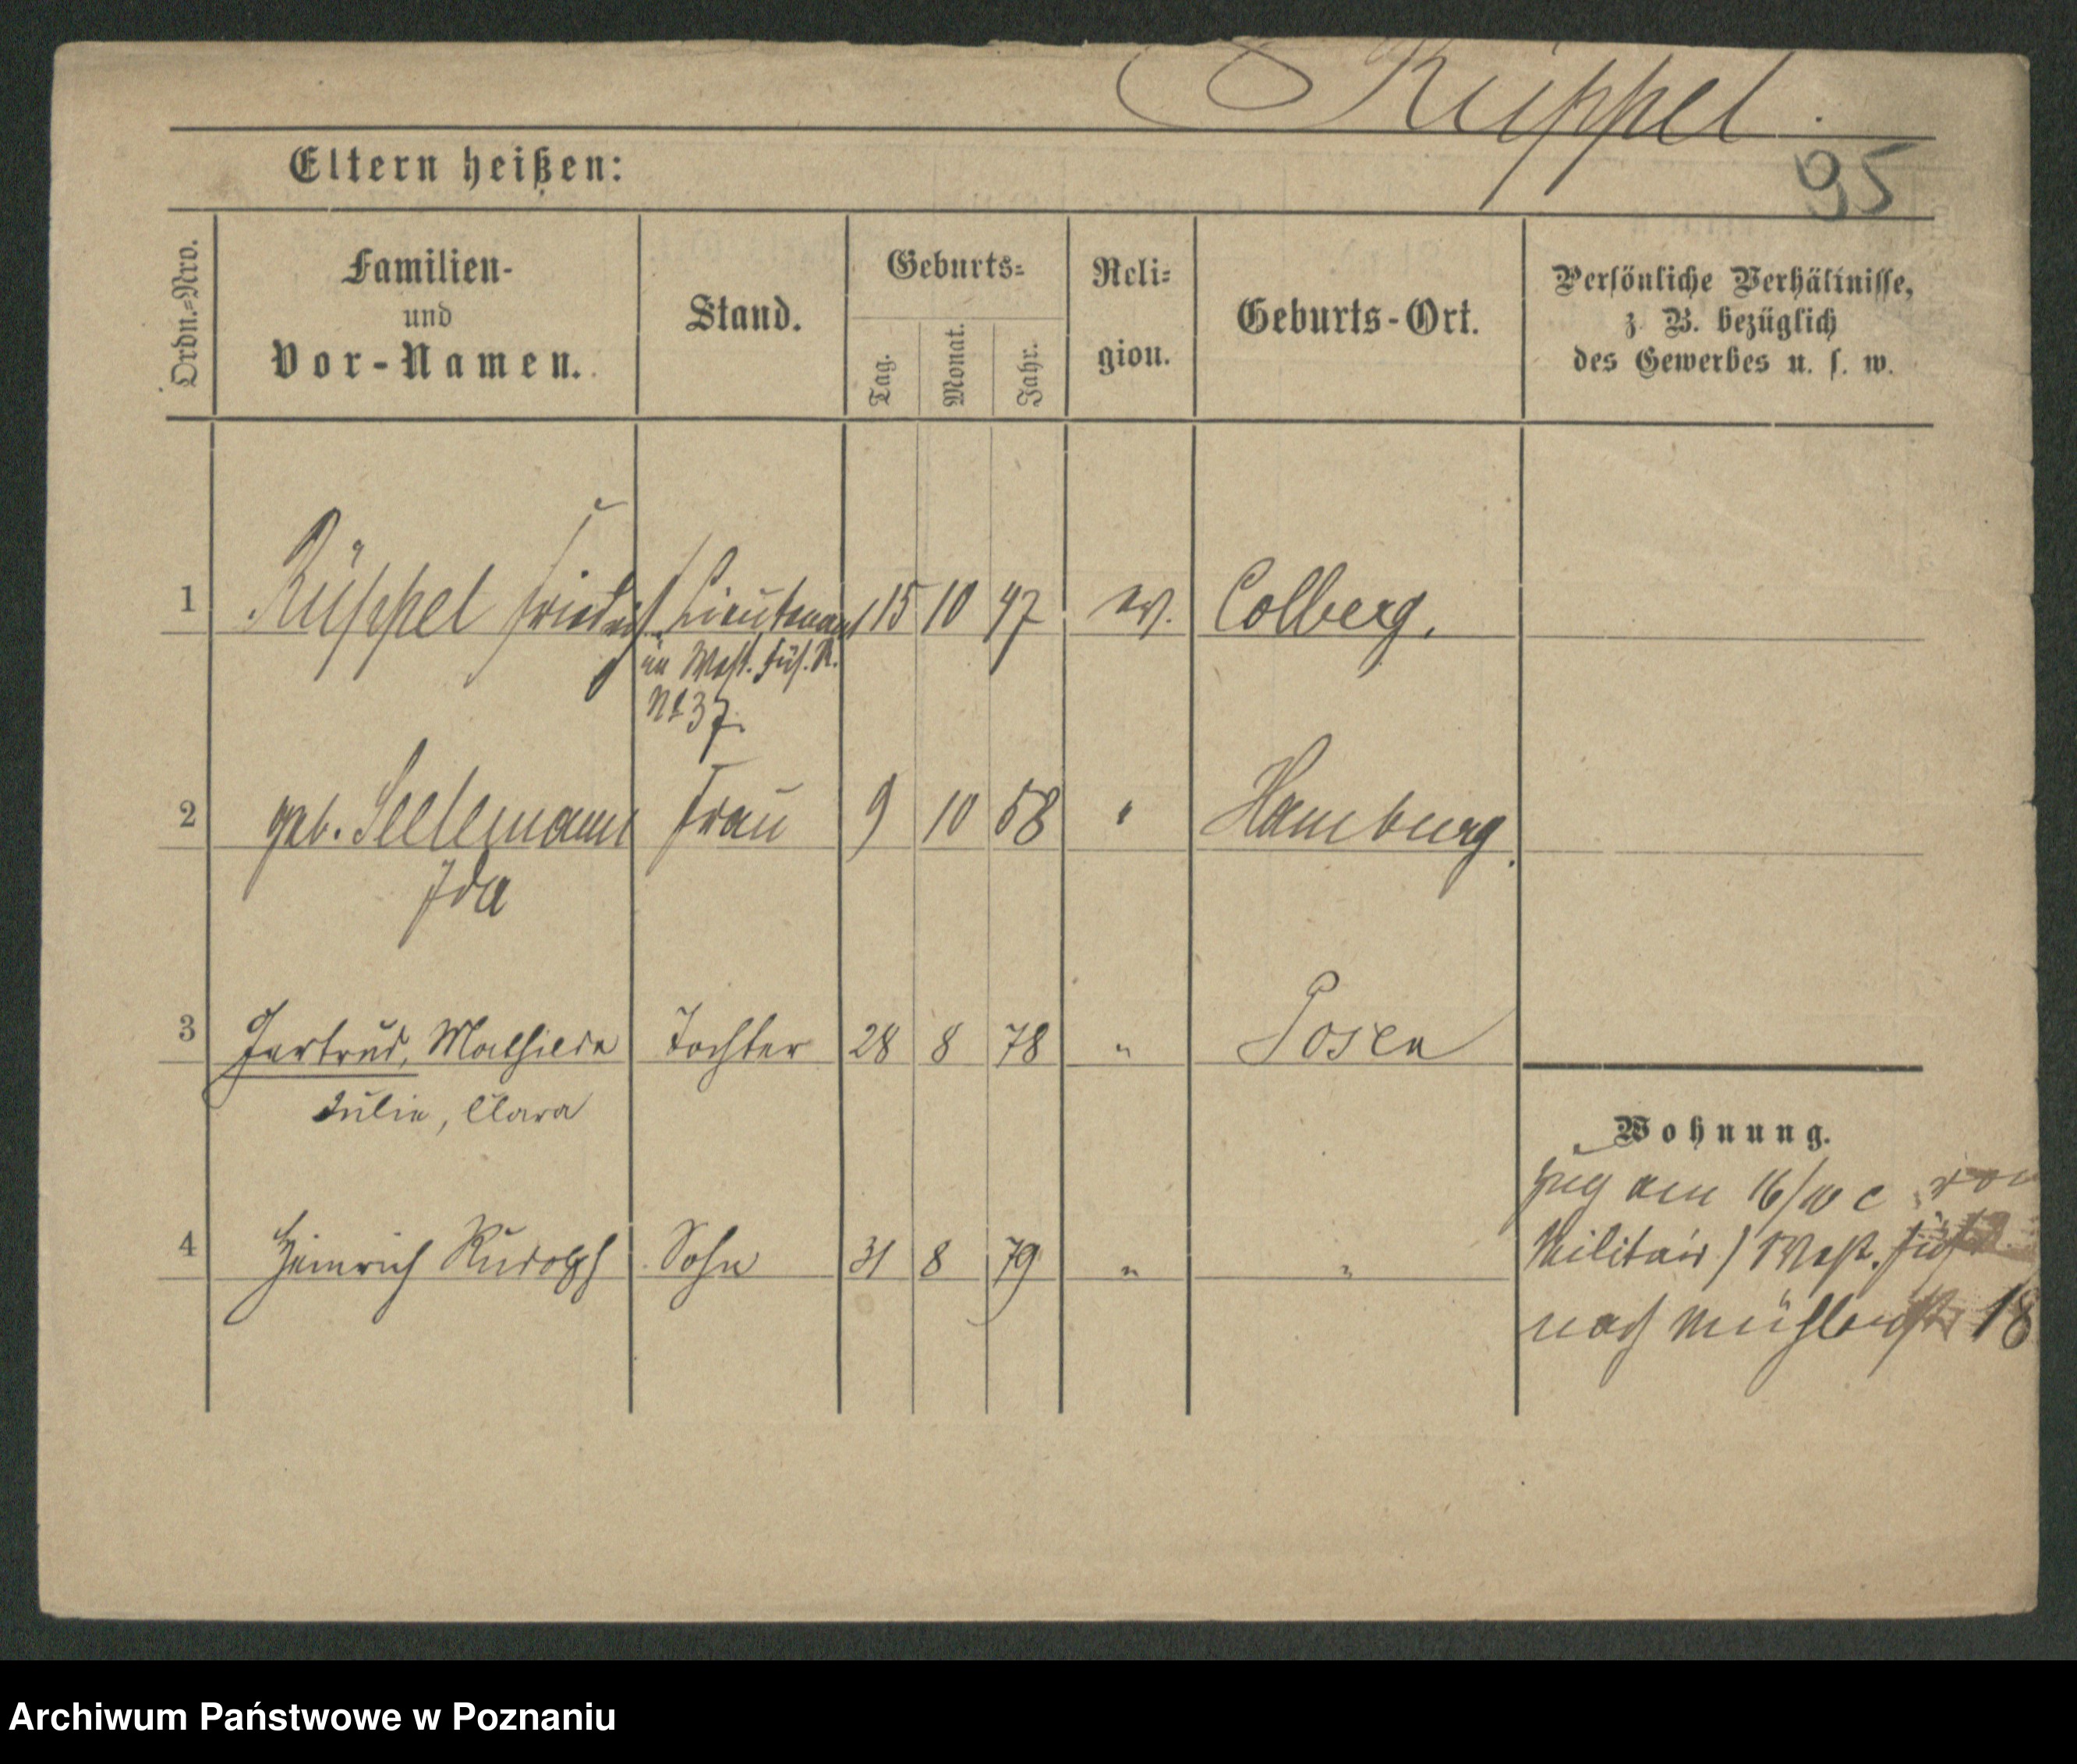 Rüppel.
95
Eltern heißen:
Ordn.=Nro.
Familien-
und
Vor-Namen.
Stand.
Geburts=
Tag.
Monat.
Jahr.
Reli=
gion.
Geburts-Ort.
Persönliche Verhältnisse,
z. B. bezüglich
des Gewerbes u. s. w.
1 Rüppel Friedrich Lieutenant 15 10 47 ev. Colberg.
im Westf. Füs. R.
No 37.
2 geb. Seelemann Frau 9 10 58 " Hamburg.
Ida
3 Gertrud, Mathilde Tochter 28 8 78 " Posen
Julie, Clara
4 Heinrich Rudolph Sohn 31 8 79 " "
Wohnung.
zug am 16/10 c von
Militair / Westf. Füs. R.
nach Mühlenstr 18
Archiwum Państwowe w Poznaniu